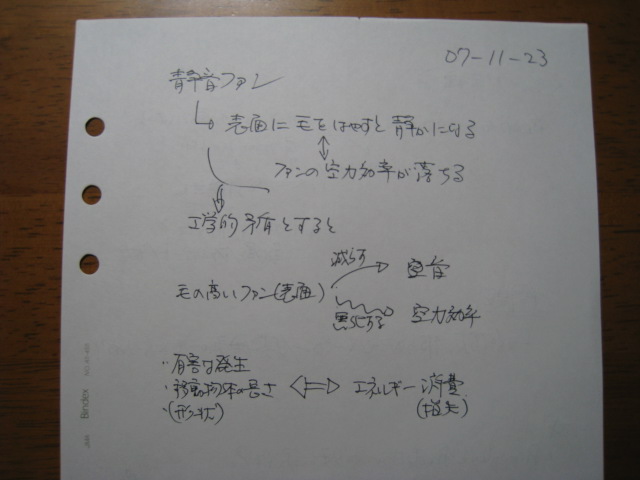 07-11-23
静音ファン
表面に毛をはやすと静かになる
ファンの空力効率が落ちる
工学的矛盾とすると
減らす
毛の高いファン(表面) 空音
悪化する 空力効率
・有害な発生
・移動物体の長さ ⇔ エネルギー消費
・(形状) (損失)
Bindex